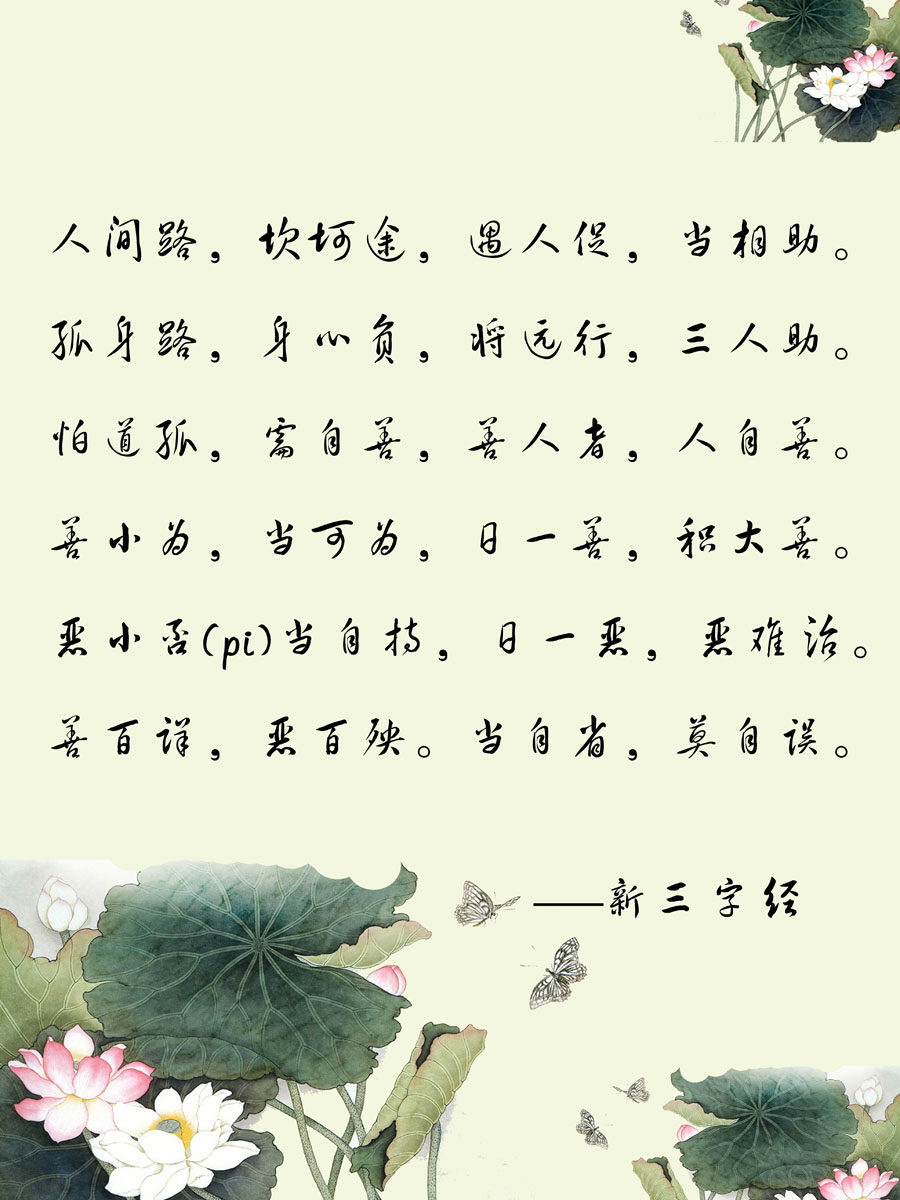 人间路，坎坷途，遇人促，当相助。
孤身路，身心负，将远行，三人助。
怕道孤，需自善，善人者，人自善。
善小为，当可为，日一善，积大善。
恶小否(pi)当自持，日一恶，恶难治。
善百详，恶百殃。当自省，莫自误。
——新三字经